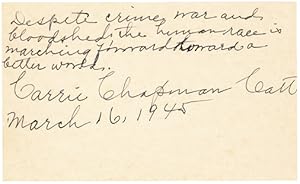 Despite crime, war and
bloodshed, the human race is
marching forward toward a
better world.
Carrie Chapman Catt
March 16, 1945